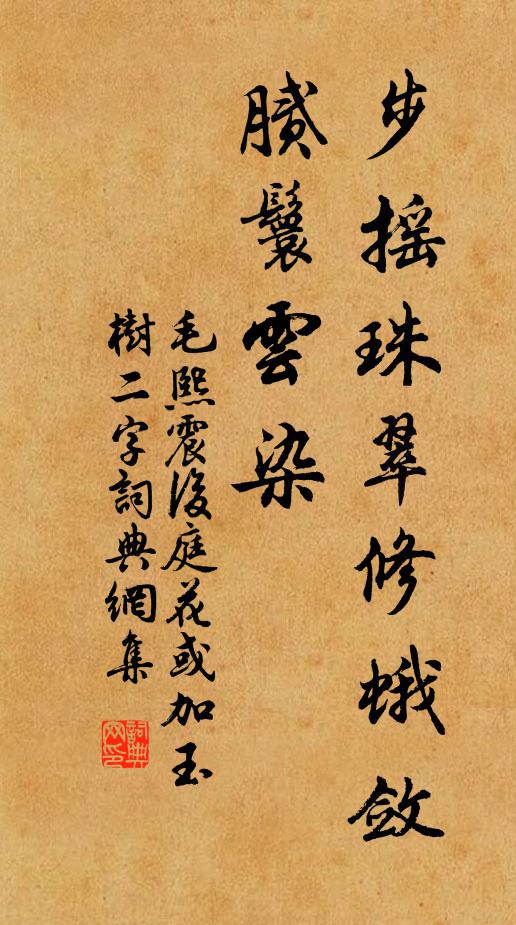 步摇珠翠修蛾敛
腻鬟雲染
毛熙震後庭花或加玉
樹二字詞典網集
詞典網印